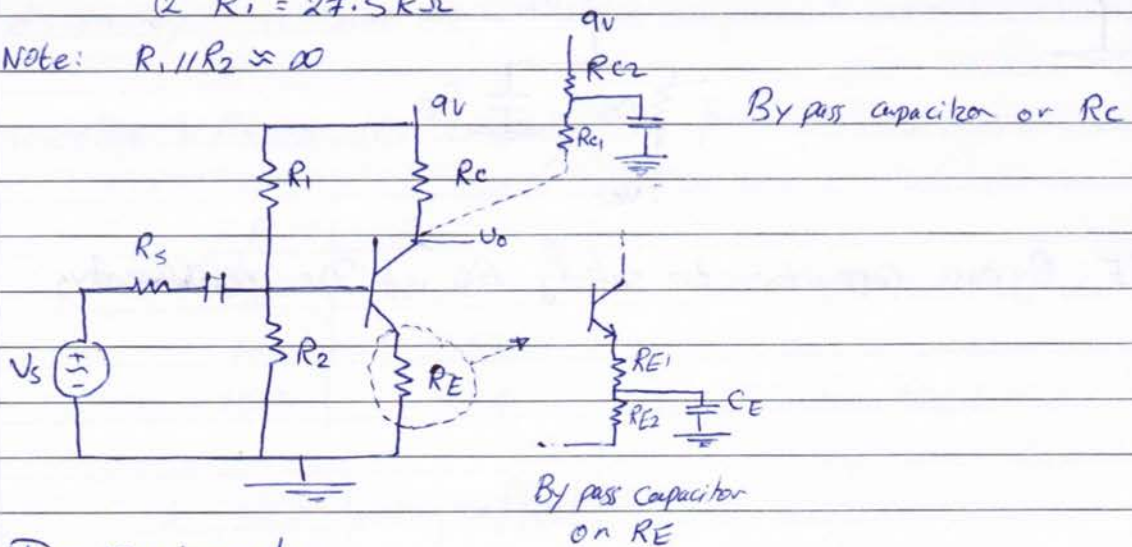 R1 = 27.5kΩ
Note: R1//R2 ≈ ∞
9V
RC2
By pass capacitor or Rc
9V
Rc1
R1
Rc
Rs
Uo
Vs
R2
RE
RE1
RE2
CE
By pass capacitor
on RE